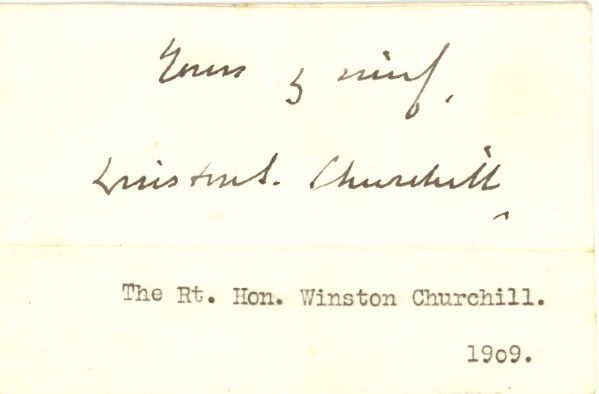 Yours
Winston S. Churchill
The Rt. Hon. Winston Churchill.
1909.